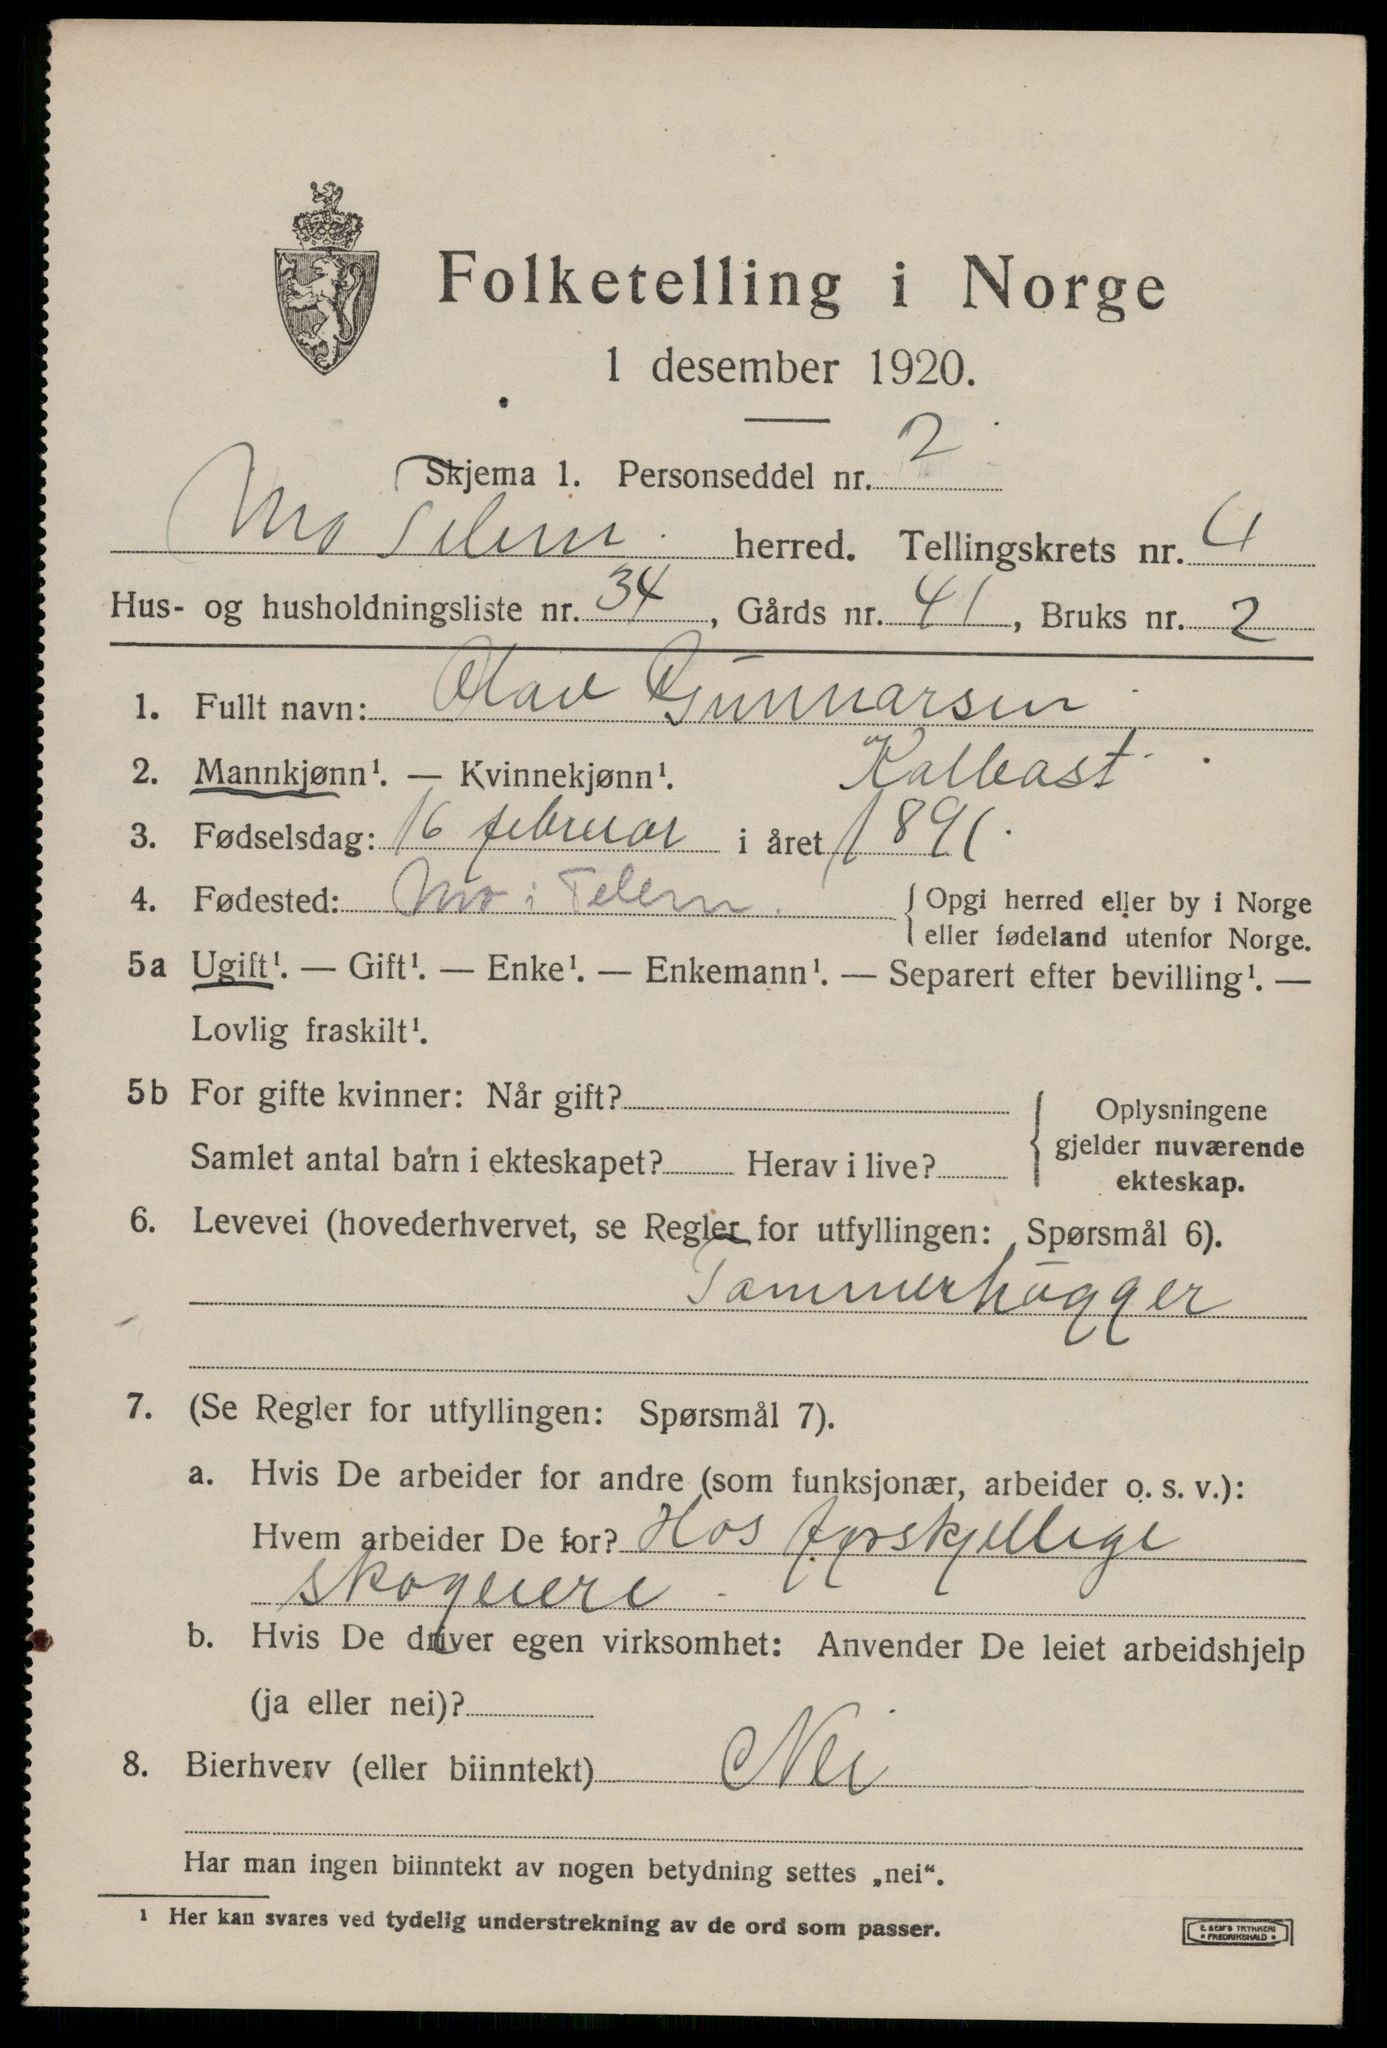 Folketelling i Norge
1 desember 1920.
Skjema 1. Personseddel nr. 2
Mo Telem. herred. Tellingskrets nr. 4
Hus- og husholdningsliste nr. 34, Gårds nr. 41, Bruks nr. 2
1. Fullt navn: Olav Gunnarsen
2. Mannkjønn¹. — Kvinnekjønn¹. Kalbast
3. Fødselsdag: 16 februar i året 1891.
4. Fødested: Mo i Telem. { Opgi herred eller by i Norge
eller fødeland utenfor Norge.
5a Ugift¹. — Gift¹. — Enke¹. — Enkemann¹. — Separert efter bevilling¹. —
Lovlig fraskilt¹.
5b For gifte kvinner: Når gift?
Samlet antal barn i ekteskapet? Herav i live?
{ Oplysningene
gjelder nuværende
ekteskap.
6. Levevei (hovederhvervet, se Regler for utfyllingen: Spørsmål 6).
Tømmerhugger
7. (Se Regler for utfyllingen: Spørsmål 7).
a. Hvis De arbeider for andre (som funksjonær, arbeider o. s. v.):
Hvem arbeider De for? Hos forskjellige
skogeiere
b. Hvis De driver egen virksomhet: Anvender De leiet arbeidshjelp
(ja eller nei)?
8. Bierhverv (eller biinntekt) Nei
Har man ingen biinntekt av nogen betydning settes „nei“.
¹ Her kan svares ved tydelig understrekning av de ord som passer.
E. SEM'S TRYKKERI
FREDRIKSHALD